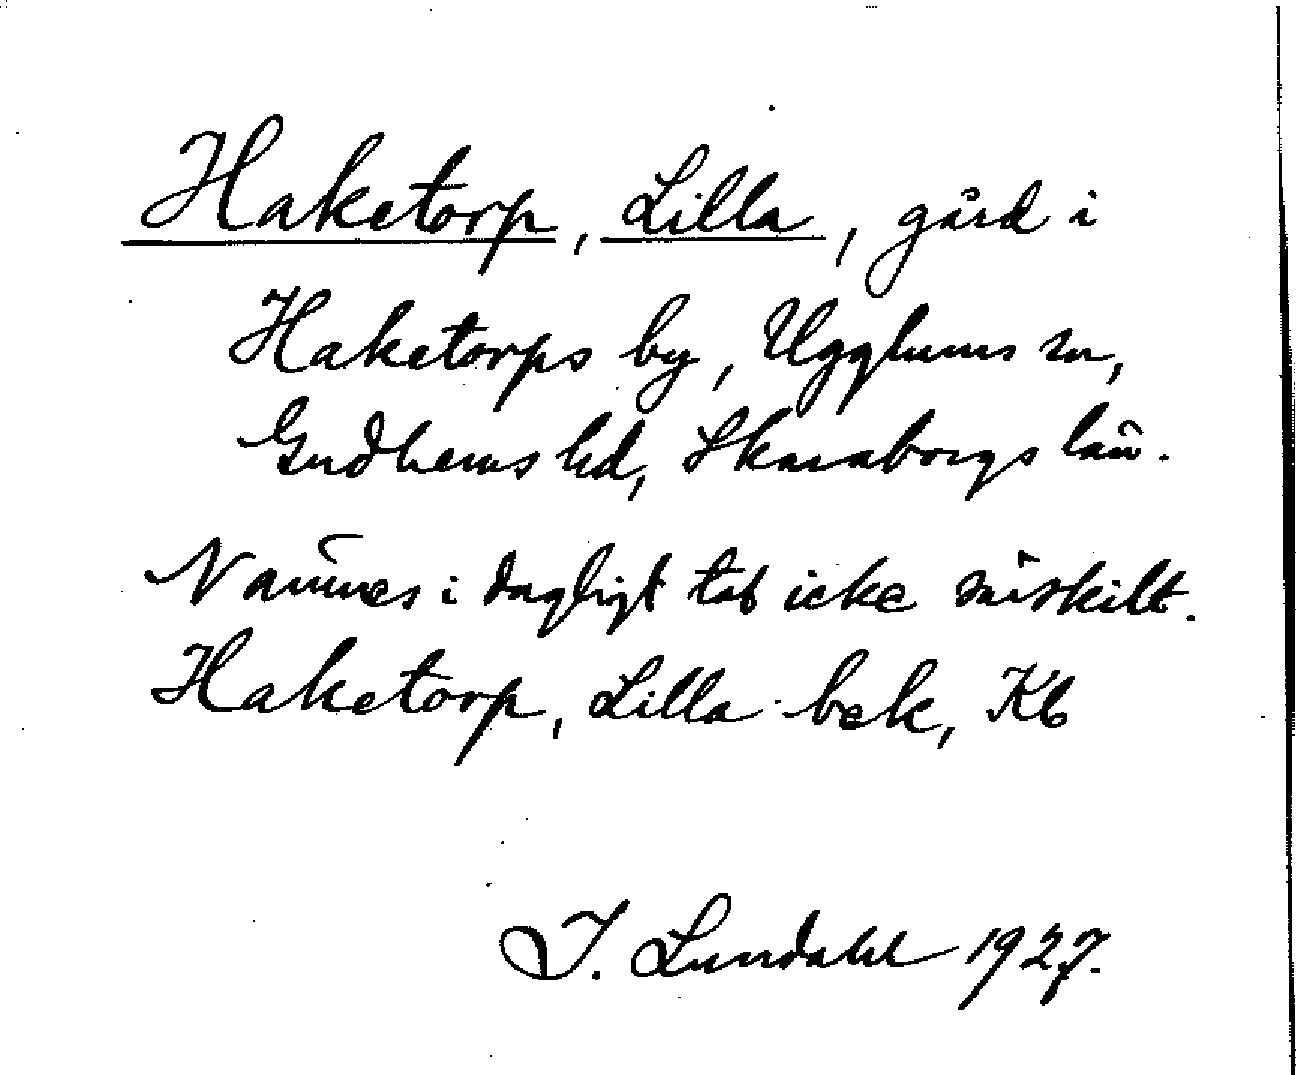 Haketorp, Lilla, gård i
Haketorps by, Ugglums sn,
Gudhems hd, Skaraborgs län.
Nämnes i dagligt tal icke särskilt.
Haketorp, Lilla - bek, Kb
I. Lundahl 1927.